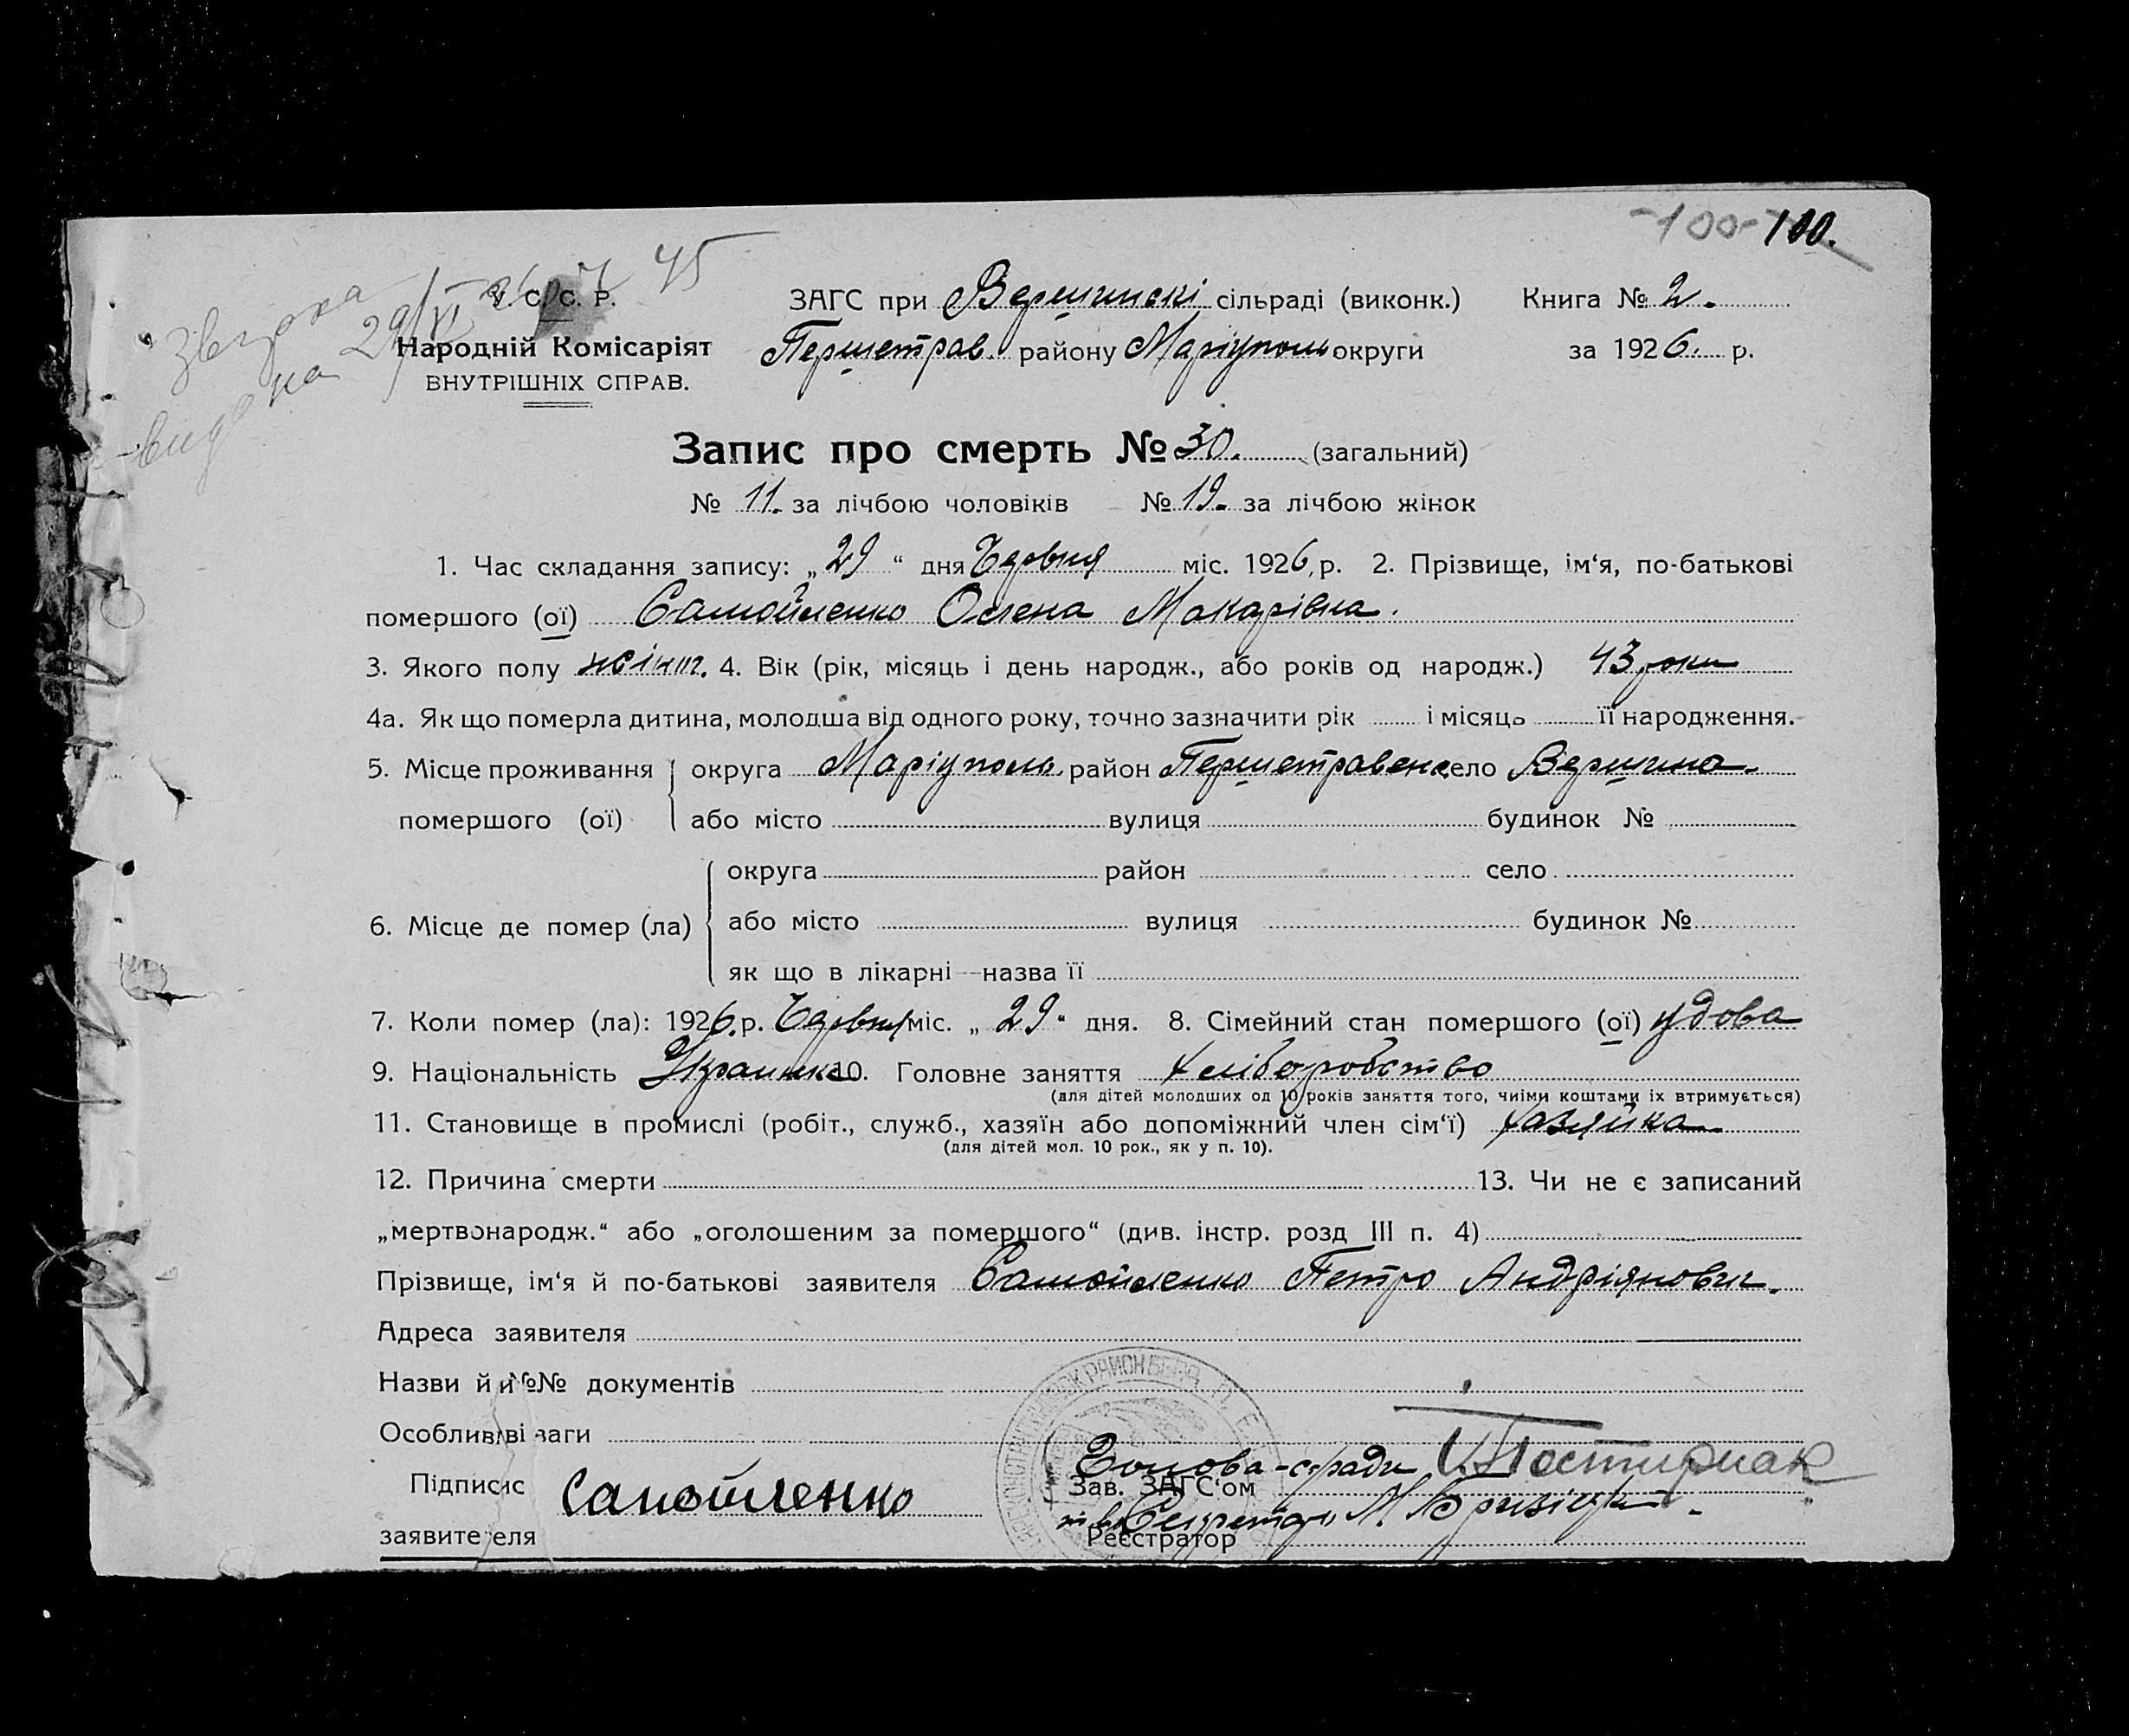 -100- 100.
45
У. С. С. Р. ЗАГС при Вершинскі сільраді (виконк.) Книга № 2.
Народній Комісаріят Першетрав. району Маріуполь округи за 1926. р.
ВНУТРІШНІХ СПРАВ.
Запис про смерть № 30. (загальний)
№ 11. за лічбою чоловіків № 19. за лічбою жінок
1. Час складання запису: „ 29 “ дня Червня міс. 1926, р. 2. Прізвище, ім‘я, по-батькові
помершого (ої) Самойленко Олена Макарівна.
3. Якого полу жінш. 4. Вік (рік, місяць і день народж., або років од народж.) 43 роки
4а. Як що померла дитина, молодша від одного року, точно зазначити рік і місяць її народження.
5. Місце проживання округа Маріуполь. район Першетравенс село Вершина.
помершого (ої) або місто вулиця будинок №
округа район село
6. Місце де помер (ла) або місто вулиця будинок №
як що в лікарні—назва її
7. Коли помер (ла): 1926. р. Червня міс. „ 29 “ дня. 8. Сімейний стан помершого (ої) удова
9. Національність Украинка 10. Головне заняття хліборобство
(для дітей молодших од 10 років заняття того, чиіми коштами їх втримується)
11. Становище в промислі (робіт., служб., хазяїн або допоміжний член сім‘ї) хазяйка
(для дітей мол. 10 рок., як у п. 10).
12. Причина смерти 13. Чи не є записаний
„мертвонародж.“ або „оголошеним за помершого“ (див. інстр. розд III п. 4)
Прізвище, ім‘я й по-батькові заявителя Самойленко Петро Андріянович.
Адреса заявителя
Назви й №№ документів
Особливі ваги
Голова с-ради
Підпис Самойленко Зав. ЗАГС‘ом
Секретарь
заявителя Реєстратор